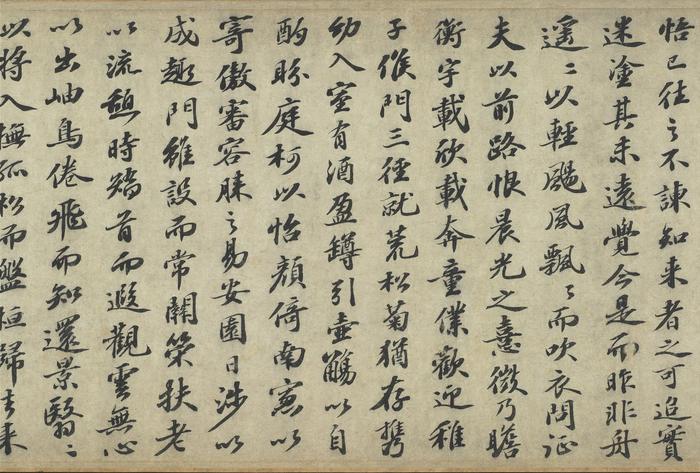 悟已往之不諫知来者之可追實
迷塗其未遠覺今是而昨非舟
遥〻以輕颺風飄〻而吹衣問征
夫以前路恨晨光之熹微乃瞻
衡宇載欣載奔童僕歡迎稚
子候門三徑就荒松菊猶存携
幼入室有酒盈罇引壺觴以自
酌眄庭柯以怡顔倚南窻以
寄傲審容膝之易安園日涉以
成趣門雖設而常關策扶老
以流憩時矯首而遐觀雲無心
以出岫鳥倦飛而知還景翳〻
以將入撫孤松而盤桓歸去来